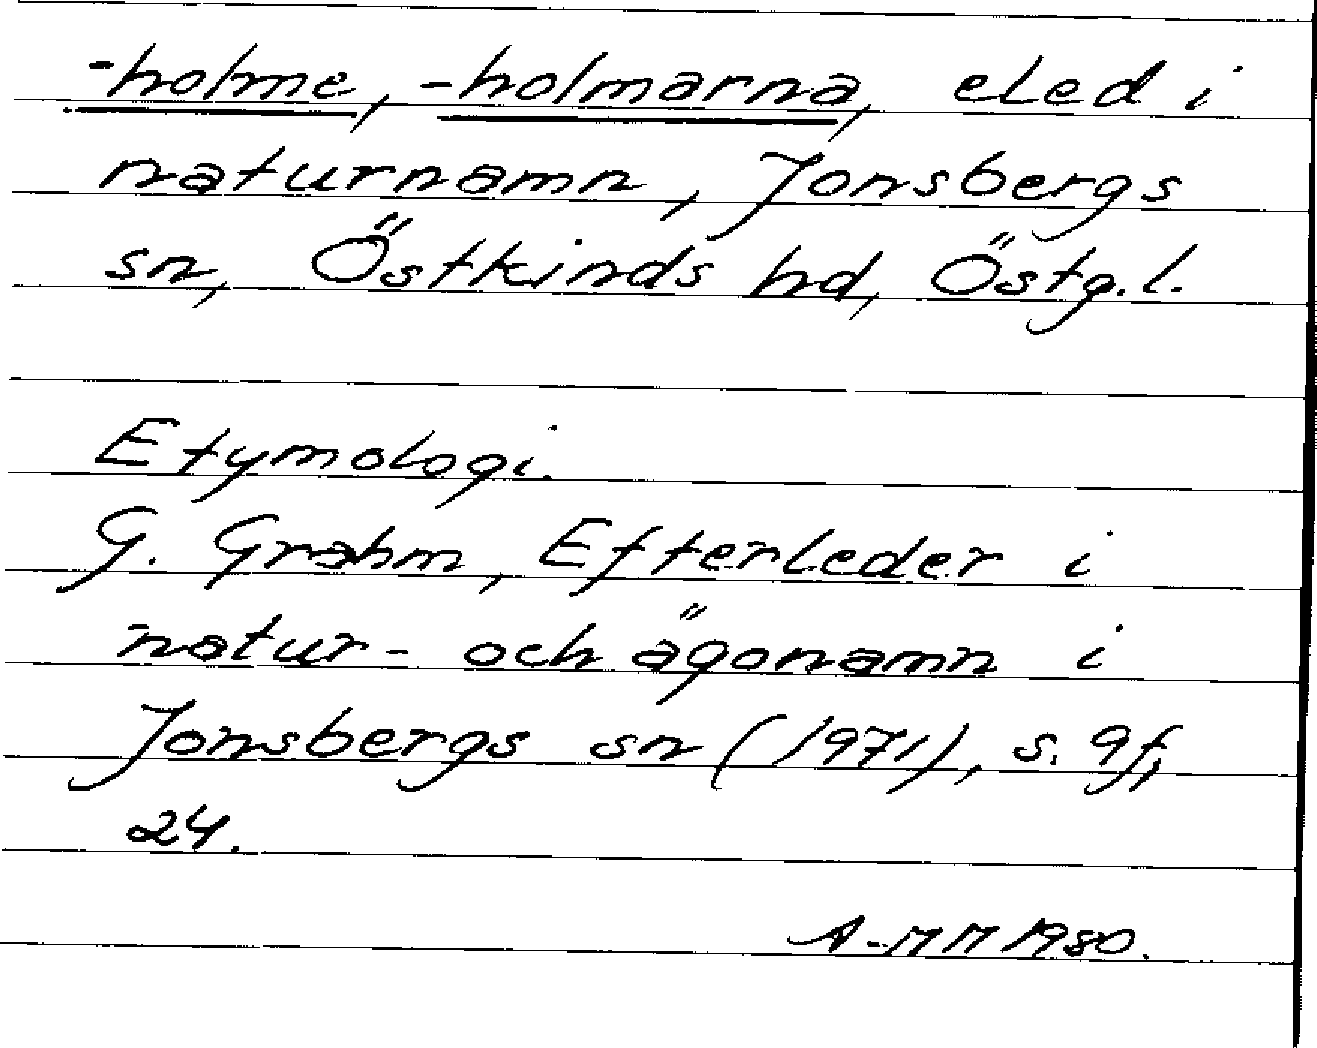 -holme, -holmarna, eled i
naturnamn, Jonsbergs
sn, Östkinds hd, Östg.l.
Etymologi.
G. Grahm, Efterleder i
natur- och ägonamn i
Jonsbergs sn (1971), s. 9f,
24.
A-MM 1980.